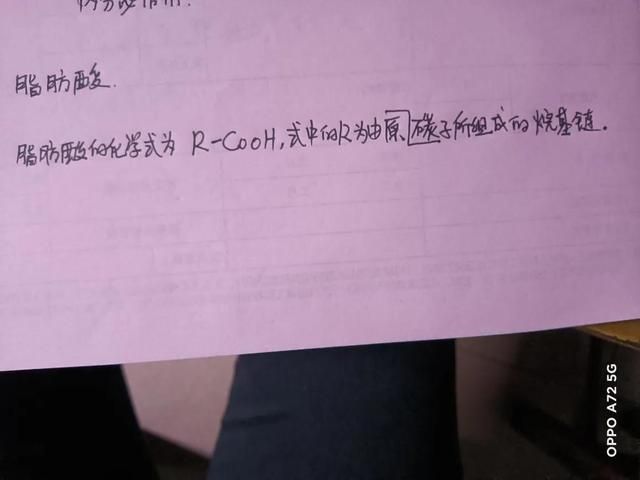 脂肪酸.
脂肪酸的化学式为 R-COOH,式中的R为由原碳子所组成的烷基链.
OPPO A72 5G